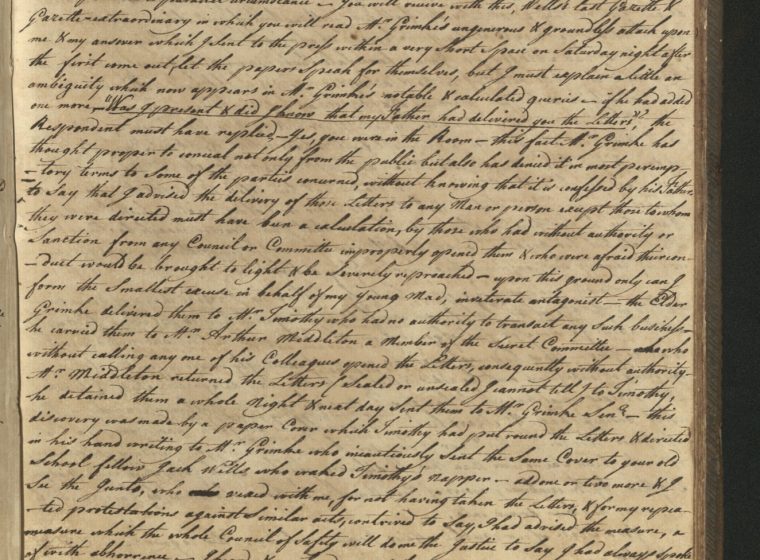 circumstance — You will receive with this, Wells's last Gazette &
Gazette extraordinary in which you will read Mr. Grimke's ungenerous & groundless attack upon
me & my answer which I sent to the press within a very short space on Saturday night after
the first come out, let the papers speak for themselves, but I must explain a little an
ambiguity which now appears in Mr. Grimke's notable & calculated queries — if he had added
one more, "Was I present & did I know that my Father had delivered you the Letters?", the
Respondent must have replied, Yes, you were in the Room — this fact Mr. Grimke has
thought proper to conceal not only from the public but also has denied it in most peremp-
-tory terms to some of the parties concerned, without knowing that it is confessed by his Father,
to say that I advised the delivery of those Letters to any Man or person except those to whom
they were directed must have been a calculation, by those who had without authority or
Sanction from any Council or Committee improperly opened them & who were afraid their con-
-duct would be brought to light & be severely reproached — upon this ground only can I
form the smallest excuse in behalf of my young Mad, inveterate antagonist — the Elder
Grimke delivered them to Mr. Timothy who had no authority to transact any such business —
he carried them to Mr. Arthur Middleton a Member of the Secret Committee — who
without calling any one of his Colleagues opened the Letters, consequently without authority —
Mr. Middleton returned the Letters (Sealed or unsealed I cannot tell) to Timothy,
he detained them a whole Night & next day sent them to Mr. Grimke Senr. — this
discovery was made by a paper Cover which Timothy had put round the Letters & directed
in his hand writing to Mr. Grimke who incautiously sent the Same Cover to your old
School fellow Jack Wells who waked Timothy's napper — add one or two more & I
See the Junto, who vexed with me, for not having taken the Letters, & for my repea-
-ted protestations against Similar acts, contrived to Say, I had advised the measure, a
measure which the whole Council of Safety will do me the Justice to Say I had always spoke
of with abhorrence